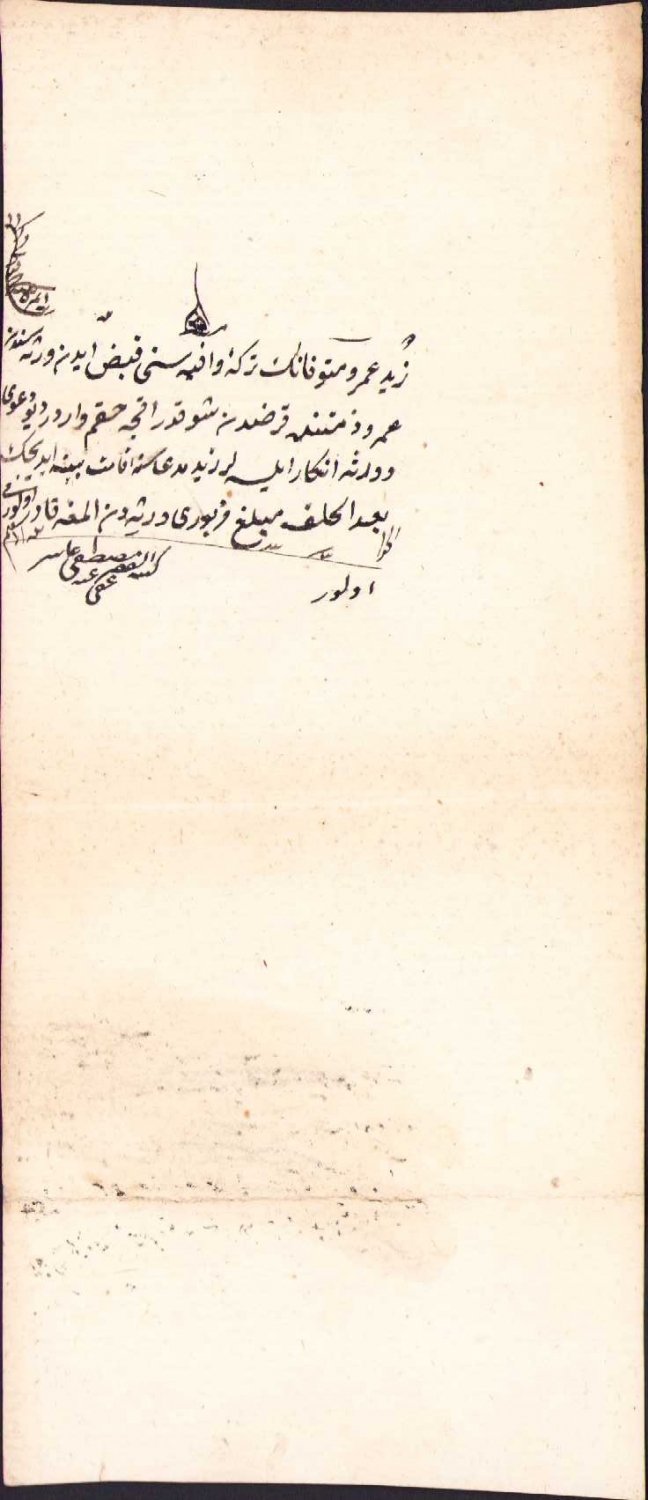 زيد عمرو متوفانك تركۀ وافيه سنى قبض ايدن ورثه سندن
عمرو ذمتنده قرضدن شو قدر اقچه حقم واردر ديو دعوى
و ورثه انكار ايلسه لر زيد مدعاسنه اقامت بينه ايديجك
بعد الحلف مبلغ مزبورى ورثه دن المغه قادر اولورمى
الجواب
اولور
كتبه الفقير مصطفى
عفى عنه